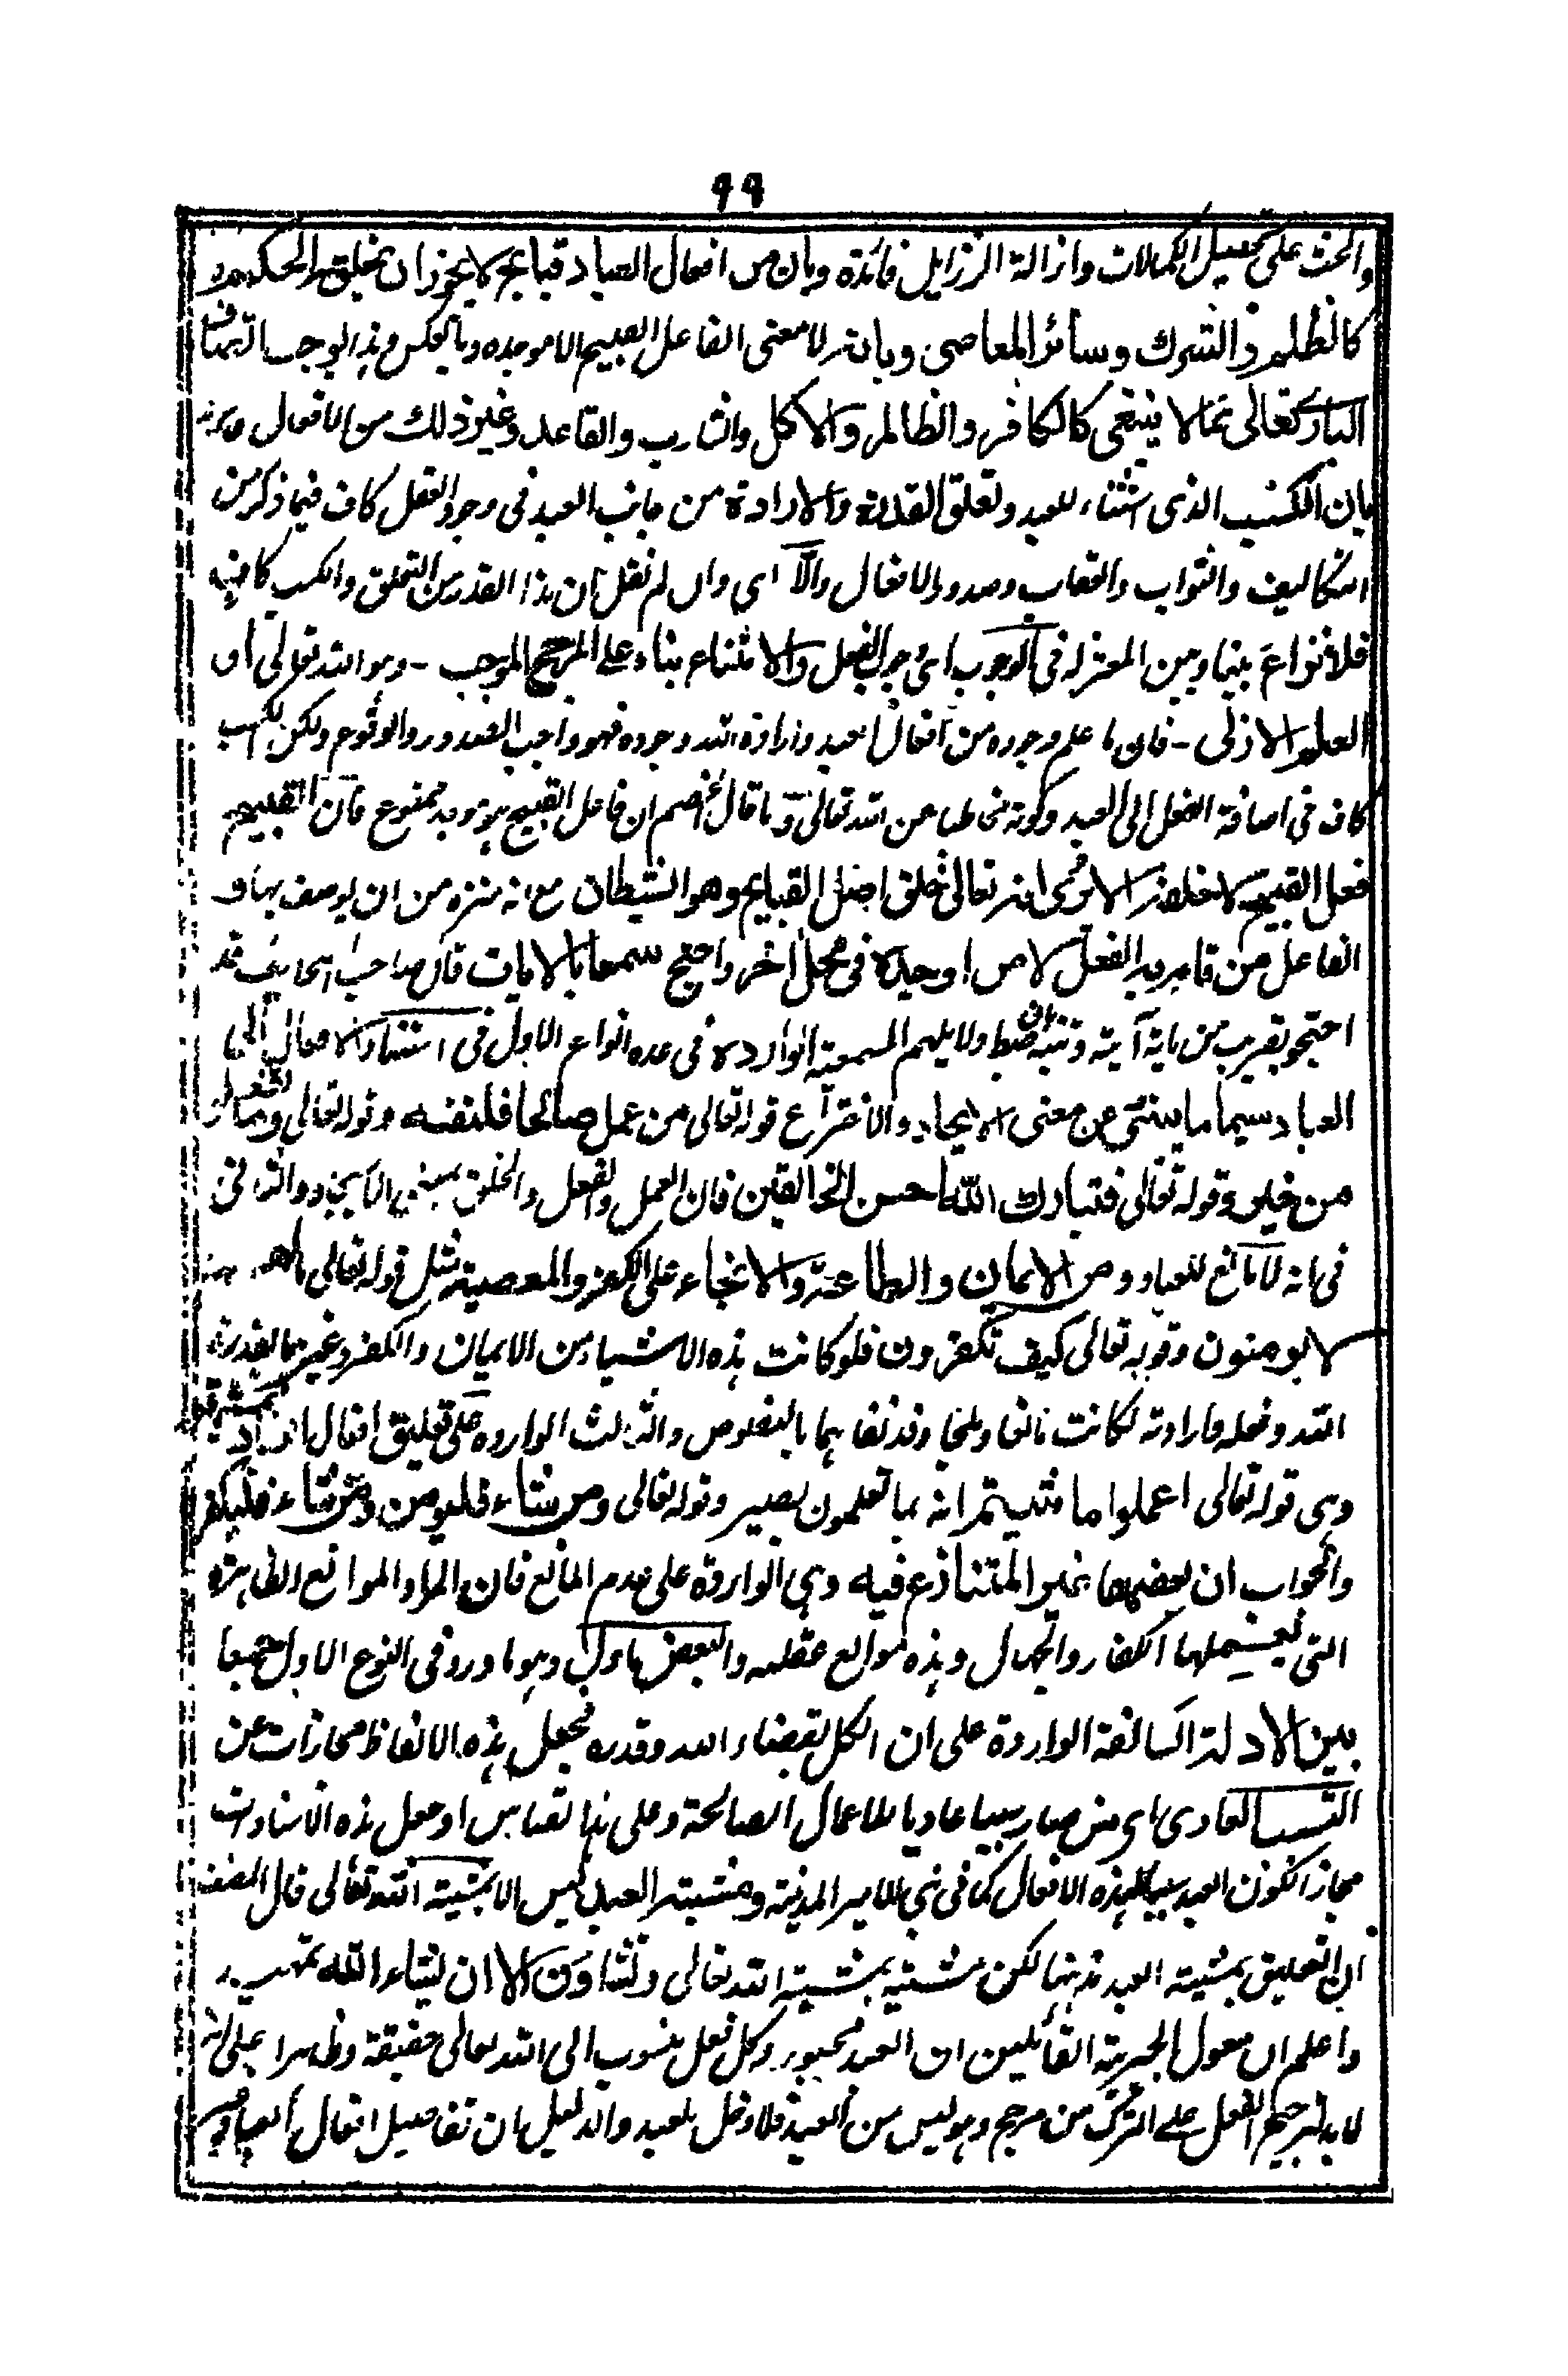 ٩٩
والحث على تحصيل الكمالات وازالة الرزايل فائدة وبان من افعال العباد قبايح لا يجوز ان يخلق الحكيم
كالظلم والشرك وسائر المعاصى وبانه لا معنى الفاعل القبيح الا موجده وبالعكس وهذا يوجب اتصاف
البارى تعالى بما لا ينبغى كالكافر والظالم والاكل والشارب والقاعد وغير ذلك من الافعال
بان الكسب الذى اثبتناه للعبد وتعلق القدرة والارادة من جانب العبد فى وجود الفعل كاف فيما ذكر من
التكاليف والثواب والعقاب وصدور الافعال والا اى وان لم نقل بان هذا القدر من التعلق والكسب كاف فيه
فلا نزاع بيننا وبين المعتزله فى الوجوب اى وجوب الفعل والامتناع بناء على المرجح الموجب - وهو الله تعالى او
العلم الازلى - فان ما علم وجوده من افعال العبد وارادة الله وجوده فهو واجب الصدور والوقوع ولكن الكسب
كاف فى اضافة الفعل الى العبد وكونه مخاطبا من الله تعالى وما قال الخصم ان فاعل القبيح هو موجده ممنوع فان القبيح
فعل القبيح لا خلقه الا ترى انه تعالى خلق اصل القبايح وهو الشيطان مع انه منزه من ان يوصف بها و
الفاعل من قام به الفعل لا من اوجده فى محل اخر واحتج سمعا بالايات قال صاحب الصحايف قد
احتجو بقريب من ماية آية وتنبه ضبط دلايلهم السمعية الواردة فى عدة انواع الاول فى استناد الافعال الى
العباد سيما ما ينبئ عن معنى الايجاد والاختراع قوله تعالى من عمل صالحا فلنفسه وقوله تعالى وما تفعلوا
من خير وقوله تعالى فتبارك الله احسن الخالقين فان العمل والفعل والخلق بمعنى الايجاد والثانى
فى انه لا مانع للعباد من الايمان والطاعة والالجاء على الكفر والمعصية مثل قوله تعالى ما لهم
لا يومنون وقوله تعالى كيف تكفرون فلو كانت هذه الاشياء من الايمان والكفر وغيرهما بقدرة
الله وفعله وارادته لكانت مانعا وملجا وقد نفاهما بالنصوص والثالث الواردة على تعليق افعال العباد بمشيتهم
وهى قوله تعالى اعملوا ما شيتم انه بما تعلمون بصير وقوله تعالى ومن شاء فليومن ومن شاء فليكفر
والجواب ان بعضها غير المتنازع فيه وهى الواردة على عدم المانع فان المراد الموانع الظاهرة
التى يعلمها الكفار والجهال وهذه موانع عقلية والبعض ماول وهو ما ورد فى النوع الاول جمعا
بين الادلة السالفة الواردة على ان الكل بقضاء الله وقدره فجعل هذه الالفاظ مجازات عن
التسبب العادى اى من صار سببا عاديا للاعمال الصالحة وعلى هذا القياس او جعل هذه الاسنادات
مجازا لكون العبد سببا لهذه الافعال كما فى بنى الامير المدينة ومشية العبد ليس الا بمشية الله تعالى قال المصنف
ان التعليق بمشية العبد مذهبنا لكن مشيته بمشية الله تعالى وتشاون الا ان يشاء الله
واعلم ان معول الجبرية القائلين ان العبد مجبور وكل فعل منسوب الى الله تعالى حقيقة وظاهرا على انه
لابد لترجيح الفعل على الترك من مرجح وهو ليس من العبد فلا دخل للعبد والدليل ان تفاصيل افعال العباد